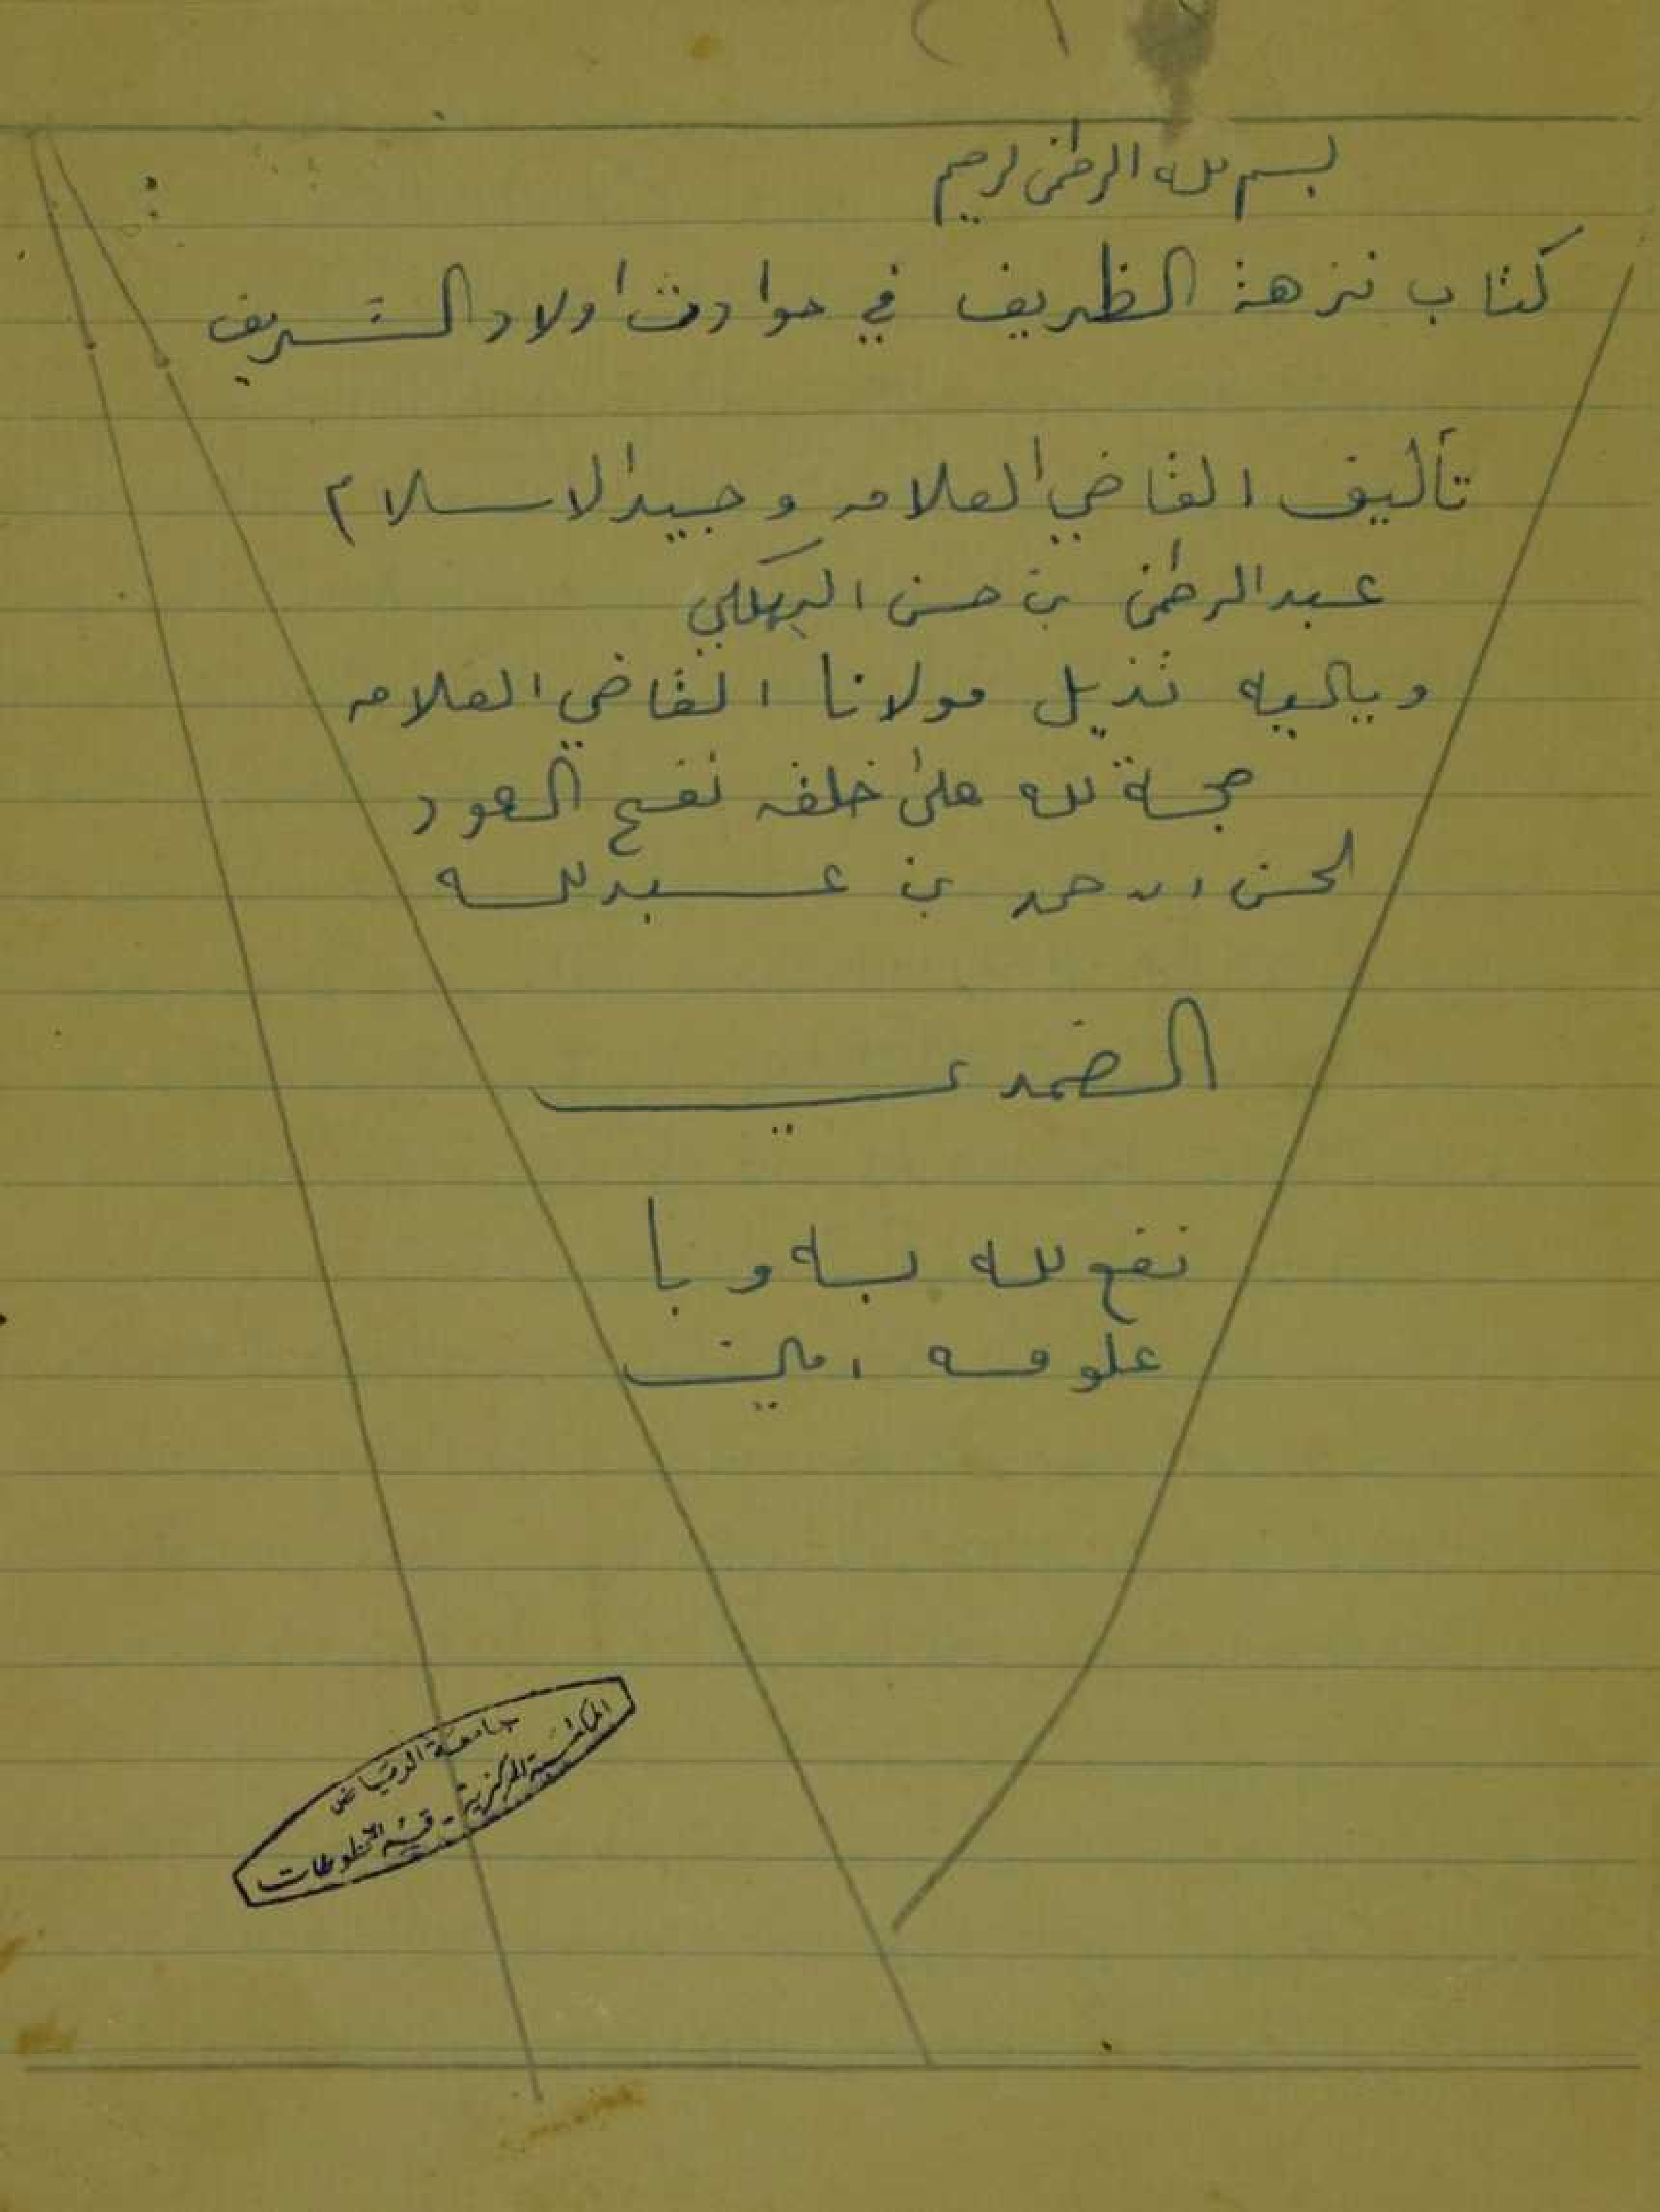 بسم الله الرحمن الرحيم
كتاب نزهة الظريف في حوادث اولاد الشريف
تأليف القاضي العلامه وجيه الاسلام
عبدالرحمن بن حسن البهكلي
وياليه تذيل مولانا القاضي العلامه
حجة الله على خلقه نفح العود
الحسن ابن احمد بن عبدالله
الضمدي
نفع الله به وبا
علومه امين
جامعة الرياض
المكتبة المركزية - قسم المخطوطات